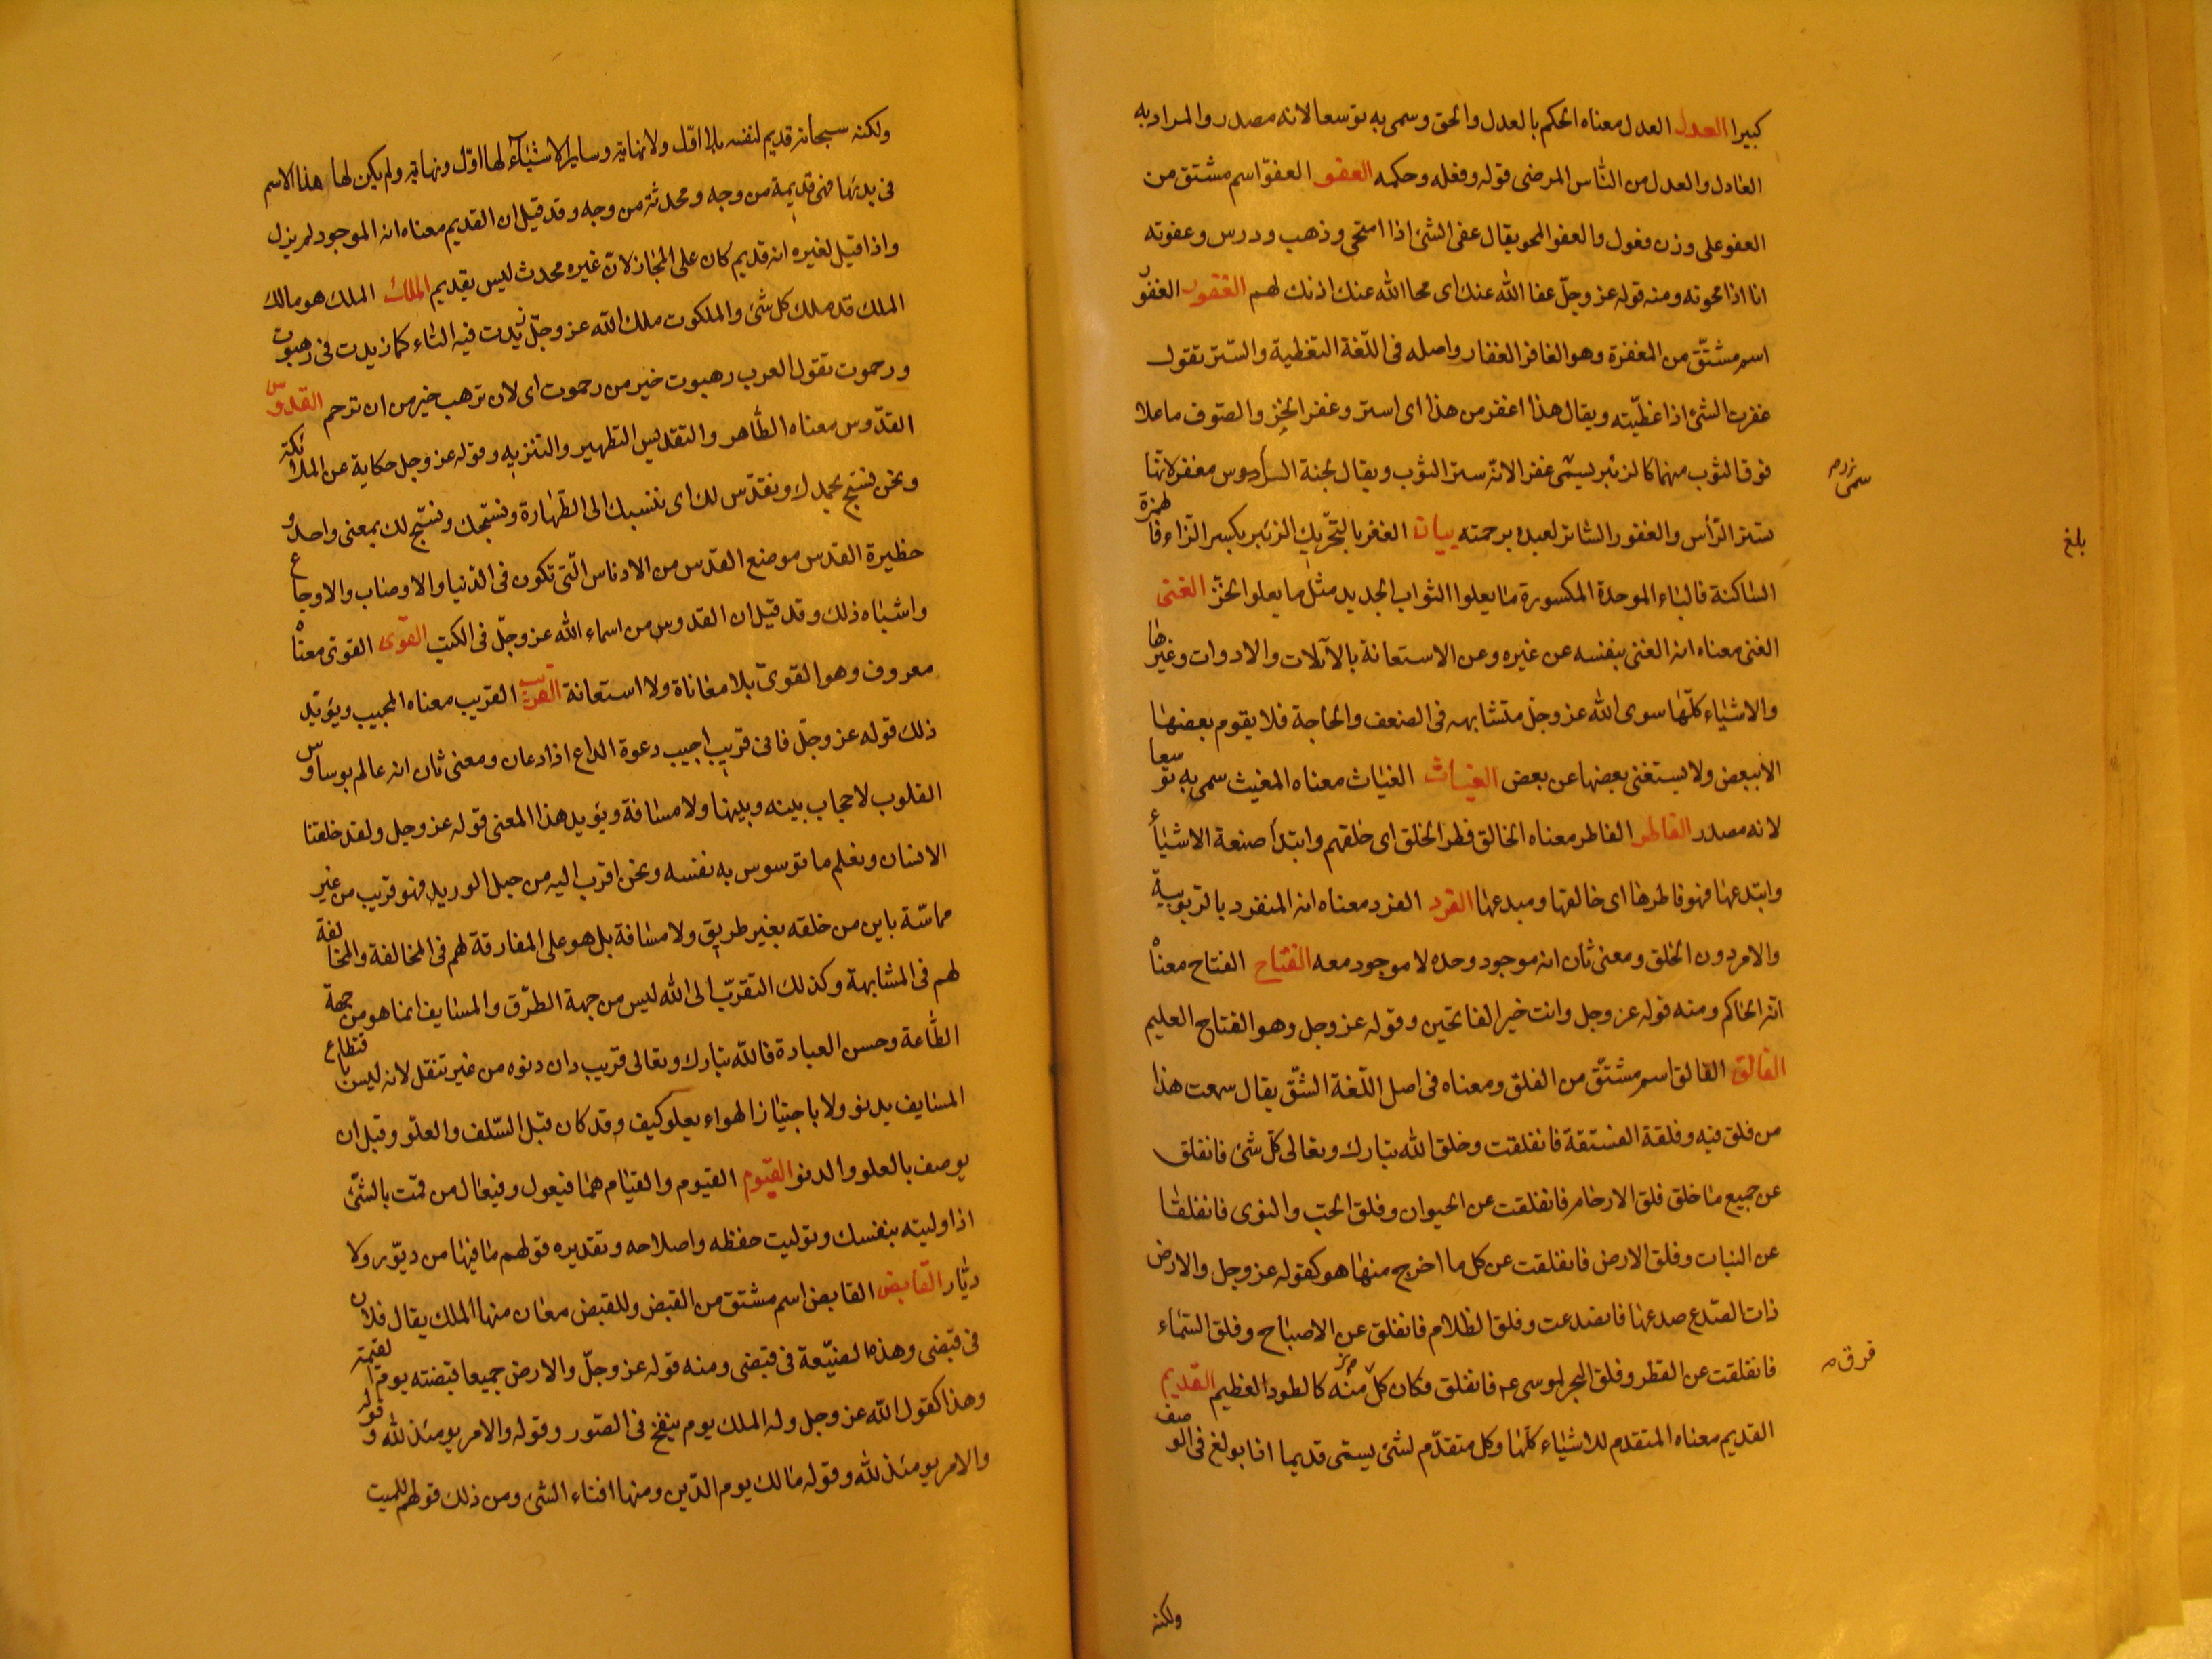 كبيرا العدل العدل معناه الحكم بالعدل والحق وسمى به توسعا لانه مصدر والمراد به
العادل والعدل من الناس المرضى قوله وفعله وحكمه العفو العفوّ اسم مشتق من
العفو على وزن فعول والعفو المحو يقال عفى الشئ اذا امتحى وذهب ودرس وعفوته
انا اذا محوته ومنه قوله عز وجلّ عفا الله عنك اى محا الله عنك اذنك لهم الغفور الغفور
اسم مشتّق من المغفرة وهو الغافر الغفار واصله فى اللّغة التغطية والسّتر تقول
غفرت الشئ اذا غطّيته ويقال هذا اغفر من هذا اى استر وغفر الخز والصّوف ما علا
فوق الثوب منهما كالزئبر يسمّى غفر الانّه ستر الثوب ويقال لجنة الرأس مغفر لانها
تستر الرّأس والغفور الساتر لعبده برحمته بيان الغفر بالتحّريك الزئبر بكسر الزّاء فالهمزة
الساكنة فالباء الموحدة المكسورة ما يعلوا الثواب الجديد مثل ما يعلوا الخزّ الغنى
الغنى معناه انه الغنى بنفسه عن غيره وعن الاستعانة بالآلات والادوات وغيرها
والاشياء كلّها سوى الله عز وجلّ متشابهه فى الضعف والحاجة فلا يقوم بعضها
الا ببعض ولا يستغنى بعضها عن بعض الغياث الغياث معناه المغيث سمى به توسعا
لانه مصدر الفاطر الفاطر معناه الخالق فطر الخلق اى خلقهم وابتدأ صنعة الاشياء
وابتدعها فهو فاطرها اى خالقها ومبدعها الفرد الفرد معناه انه المنفرد بالربوبية
والامر دون الخلق ومعنى ثان انه موجود وحده لا موجود معه الفتاح الفتاح معناه
انّه الحاكم ومنه قوله عز وجل وانت خير الفاتحين وقوله عز وجل وهو الفتاح العليم
الفالق الفالق اسم مشتّق من الفلق ومعناه فى اصل اللّغة الشّق يقال سمعت هذا
من فلق فيه وفلقة الفستقة فانفلقت وخلق الله تبارك وتعالى كلّ شئ فانفلق
عن جميع ما خلق فلق الارحام فانفلقت عن الحيوان وفلق الحبّ والنوى فانفلقا
عن النبات وفلق الارض فانفلقت عن كل ما اخرج منها هو كقوله عز وجل والارض
ذات الصّدع صدعها فانصدعت وفلق الظلام فانفلق عن الاصباح وفلق السّماء
فانفلقت عن القطر وفلق البحر لموسى عم فانفلق فكان كلّ منه كالطود العظيم القديم
القديم معناه المتقدم للاشياء كلّها وكل متقدّم لشئ يسمّى قديما اذا بولغ فى الوصف
سمى
بلغ
فرق م
ولكنه
ولكنه سبحانه قديم لنفسه بلا اوّل ولا نهاية وساير الاشياء لها اوّل ونهاية ولم يكن لها هذا الاسم
فى بدئها فهى قديمة من وجه ومحدثة من وجه وقد قيل ان القديم معناه انه الموجود لم يزل
واذا قيل لغيره انه قديم كان على المجاز لانّ غيره محدث ليس بقديم الملك الملك هو مالك
الملك قد ملك كل شئ والملكوت ملك الله عز وجلّ زيدت فيه التاء كما زيدت فى رهبوت
ورحموت تقول العرب رهبوت خير من رحموت اى لان ترهب خير من ان ترحم القدوس
القدّوس معناه الطّاهر والتقديس التطهير والتنزيه وقوله عز وجل حكاية عن الملائكة
ونحن نسّبح بحمدك ونقدّس لك اى ننسبك الى الطّهارة ونسبّحك ونسبّح لك بمعنى واحد و
حظيرة القدس موضع القدس من الادناس الّتى تكون فى الدّنيا والاوصاب والاوجاع
واشباه ذلك وقد قيل ان القدوس من اسماء الله عز وجلّ فى الكتب القوّى القوّى معناه
معروف وهو القوىّ بلا معاناة ولا استعانة القريب القريب معناه المجيب ويؤيّد
ذلك قوله عز وجلّ فانى قريب اجيب دعوة الداع اذا دعان ومعنى ثان انه عالم بوساوس
القلوب لا حجاب بينه وبينها ولا مسافة ويؤيد هذا المعنى قوله عز وجل ولقد خلقنا
الانسان ونعلم ما توسوس به نفسه ونحن اقرب اليه من حبل الوريد فهو قريب من غير
مماسّة باين من خلقه بغير طريق ولا مسافة بل هو على المفارقة لهم فى المخالفة والمخالفة
لهم فى المشابهة وكذلك التقربّ الى الله ليس من جهة الطرّق والمسايف انما هو من جهة
الطّاعة وحسن العبادة فالله تبارك وتعالى قريب دان دنوه من غير تنقل لانه ليس باقتطاع
المسايف يدنو ولا باجتياز الهواء يعلو كيف وقد كان قبل السّلف والعلّو وقبل ان
يوصف بالعلو والدنو القيّوم القيوم والقيام هما فيعول وفيعال من قمت بالشّئ
اذا وليته بنفسك وتوليت حفظه واصلاحه وتقديره قولهم ما فيها من ديّور ولا
ديّار القابض القابض اسم مشتق من القبض وللقبض معان منها الملك يقال فلان
فى قبضى وهذه الضيّعة فى قبضى ومنه قوله عز وجلّ والارض جميعا قبضته يوم القيمة
وهذا كقول الله عز وجل وله الملك يوم ينفخ فى الصّور وقوله والامر يومئذ لله وقوله
والامر يومئذ لله وقوله مالك يوم الدّين ومنها افناء الشئ ومن ذلك قولهم للميت